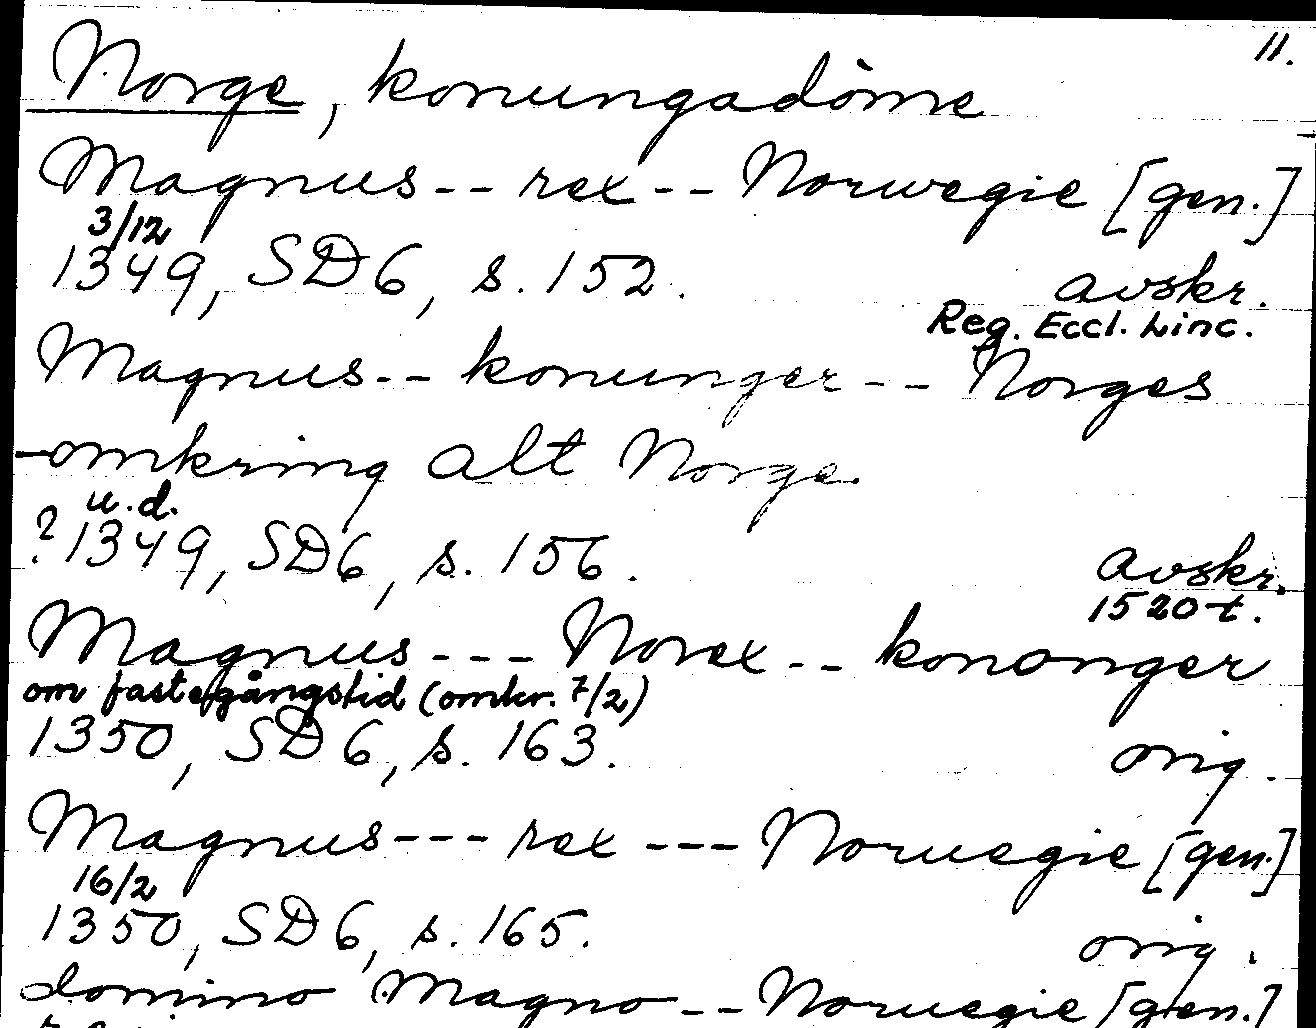 11.
Norge, konungadöme
Magnus -- rex -- Norwegie [gen.]
3/12
1349, SD6, s. 152. avskr.
Reg. Eccl. Linc.
Magnus -- konunger -- Norges
-omkring alt Norge
u.d.
? 1349, SD6, s. 156. avskr.
1520-t.
Magnus --- Norex -- kononger
om fastegångstid (omkr. 7/2)
1350, SD6, s. 163. orig.
Magnus --- rex --- Noruegie [gen.]
16/2
1350, SD6, s. 165. orig.
domino Magno -- Noruegie [gen.]